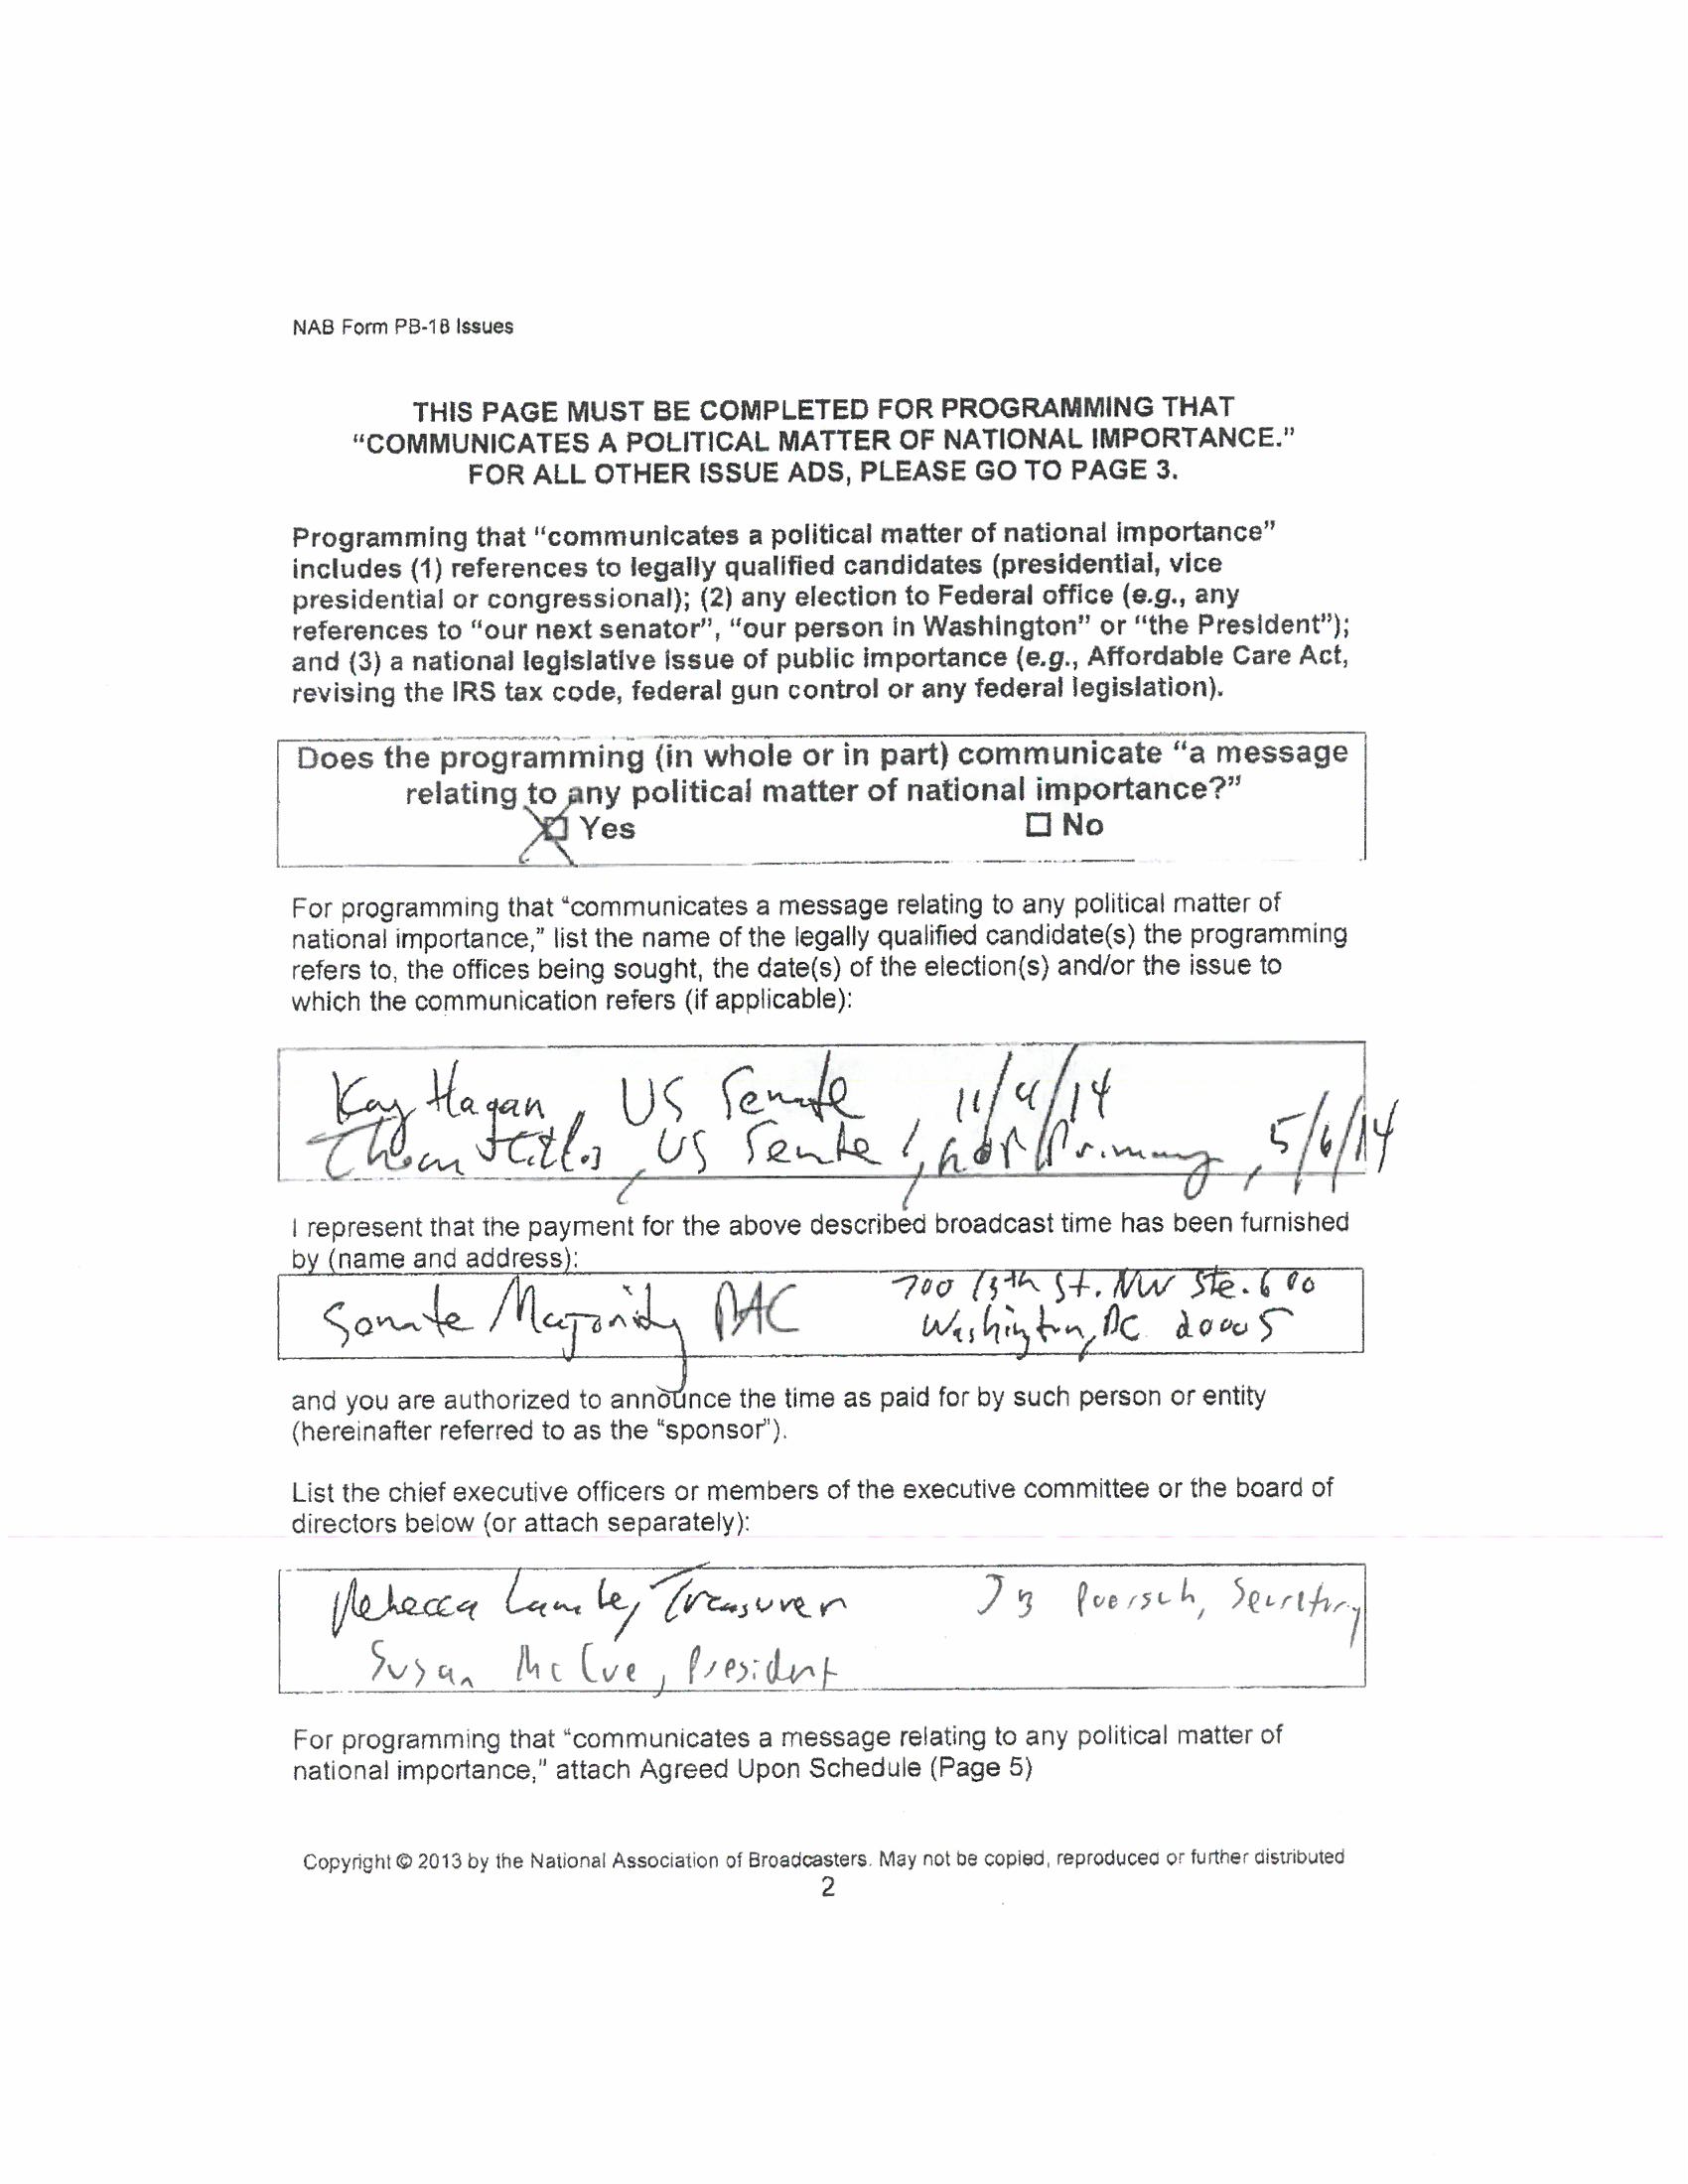 NAB Form PB-18 Issues
THIS PAGE MUST BE COMPLETED FOR PROGRAMMING THAT
“COMMUNICATES A POLITICAL MATTER OF NATIONAL IMPORTANCE.”
FOR ALL OTHER ISSUE ADS, PLEASE GO TO PAGE 3.
Programming that “communicates a political matter of national importance”
includes (1) references to legally qualified candidates (presidential, vice
presidential or congressional); (2) any election to Federal office (e.g., any
references to “our next senator”, “our person in Washington” or “the President”);
and (3) a national legislative issue of public importance (e.g., Affordable Care Act,
revising the IRS tax code, federal gun control or any federal legislation).
Does the programming (in whole or in part) communicate “a message
relating to any political matter of national importance?”
Yes No
For programming that “communicates a message relating to any political matter of
national importance,” list the name of the legally qualified candidate(s) the programming
refers to, the offices being sought, the date(s) of the election(s) and/or the issue to
which the communication refers (if applicable):
Kay Hagan, US Senate, 11/4/14
Thom Tillis, US Senate, Primary, 5/6/14
I represent that the payment for the above described broadcast time has been furnished
by (name and address):
Senate Majority PAC 700 13th St. NW Ste. 600
Washington, DC 20005
and you are authorized to announce the time as paid for by such person or entity
(hereinafter referred to as the “sponsor”).
List the chief executive officers or members of the executive committee or the board of
directors below (or attach separately):
Rebecca Lambe, Treasurer JB Poersch, Secretary
Susan McCue, President
For programming that “communicates a message relating to any political matter of
national importance,” attach Agreed Upon Schedule (Page 5)
Copyright © 2013 by the National Association of Broadcasters. May not be copied, reproduced or further distributed
2